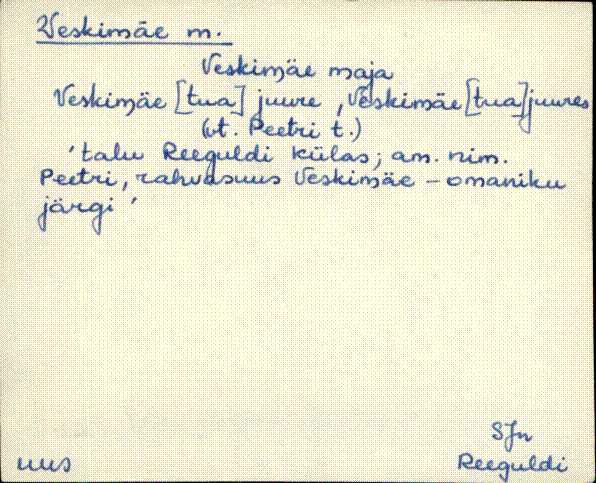 Veskimäe m.
Veskimäe maja
Veskimäe [tua] juure, Veskimäe [tua] juures
(vt. Peetri t.)
'talu Reeguldi külas; am. nim.
Peetri, rahvasuus Veskimäe - omaniku
järgi'
SJn
Reeguldi
uus